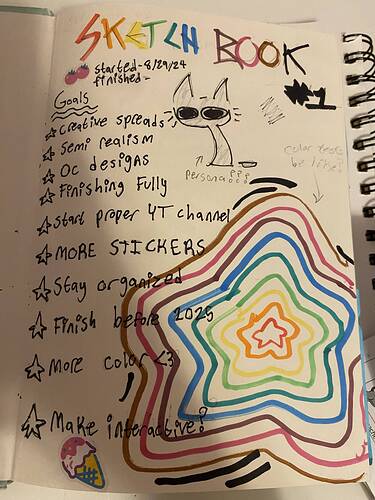 SKETCH BOOK
started-8/29/24
finished-
#1
Goals
Creative spreads
Semi realism
Oc designs
Finishing Fully
Start proper YT channel
MORE STICKERS
Stay organized
Finish before 2025
More color <3
Make interactive?
persona???
color tests
be like